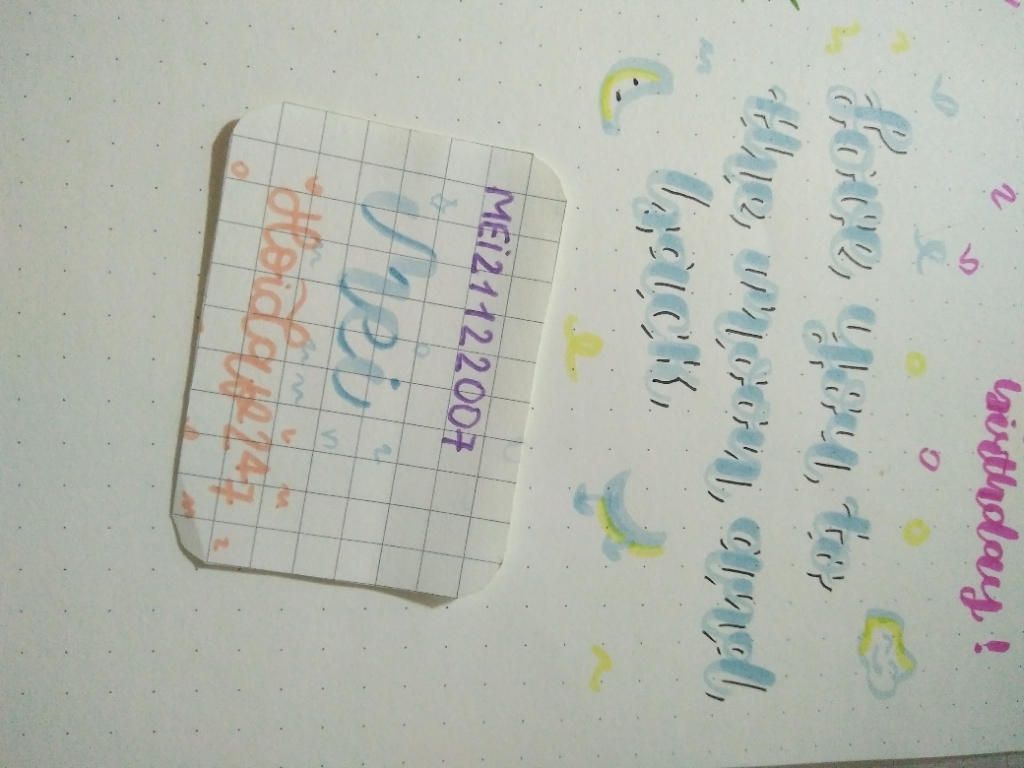 birthday!
Love you to
the moon and
back
MEi21122007
Mei